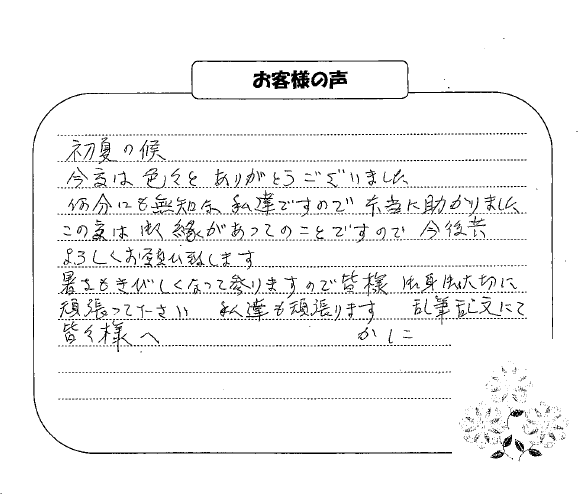 お客様の声
初夏の候
今度は色々と ありがとうございました
何分にも無知な 私達ですので 本当に助かりました
この度は御縁があってのことですので 今後共
よろしくお願い致します
暑さもきびしくなって参りますので皆様 御身御大切に
頑張って下さい 私達も頑張ります 乱筆乱文にて
皆々様へ かしこ